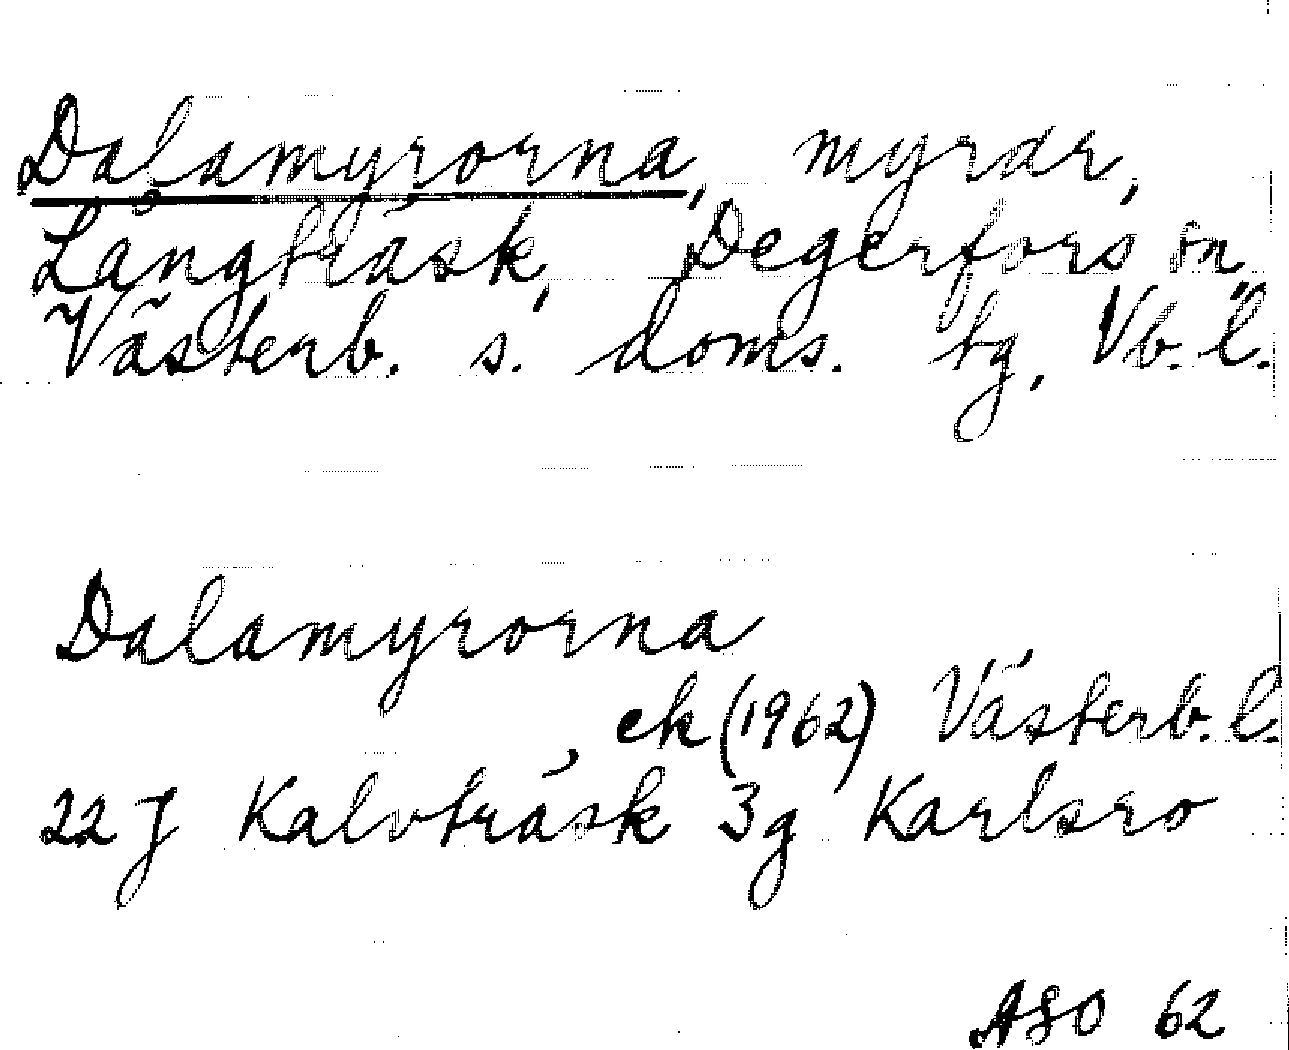 Dalamyrorna, myrar,
Långträsk, Degerfors sn,
Västerb. s. doms. tg, Vb. l.
Dalamyrorna
ek (1962) Västerb. l.
22 J Kalvträsk 3g Karlsro
ASO 62